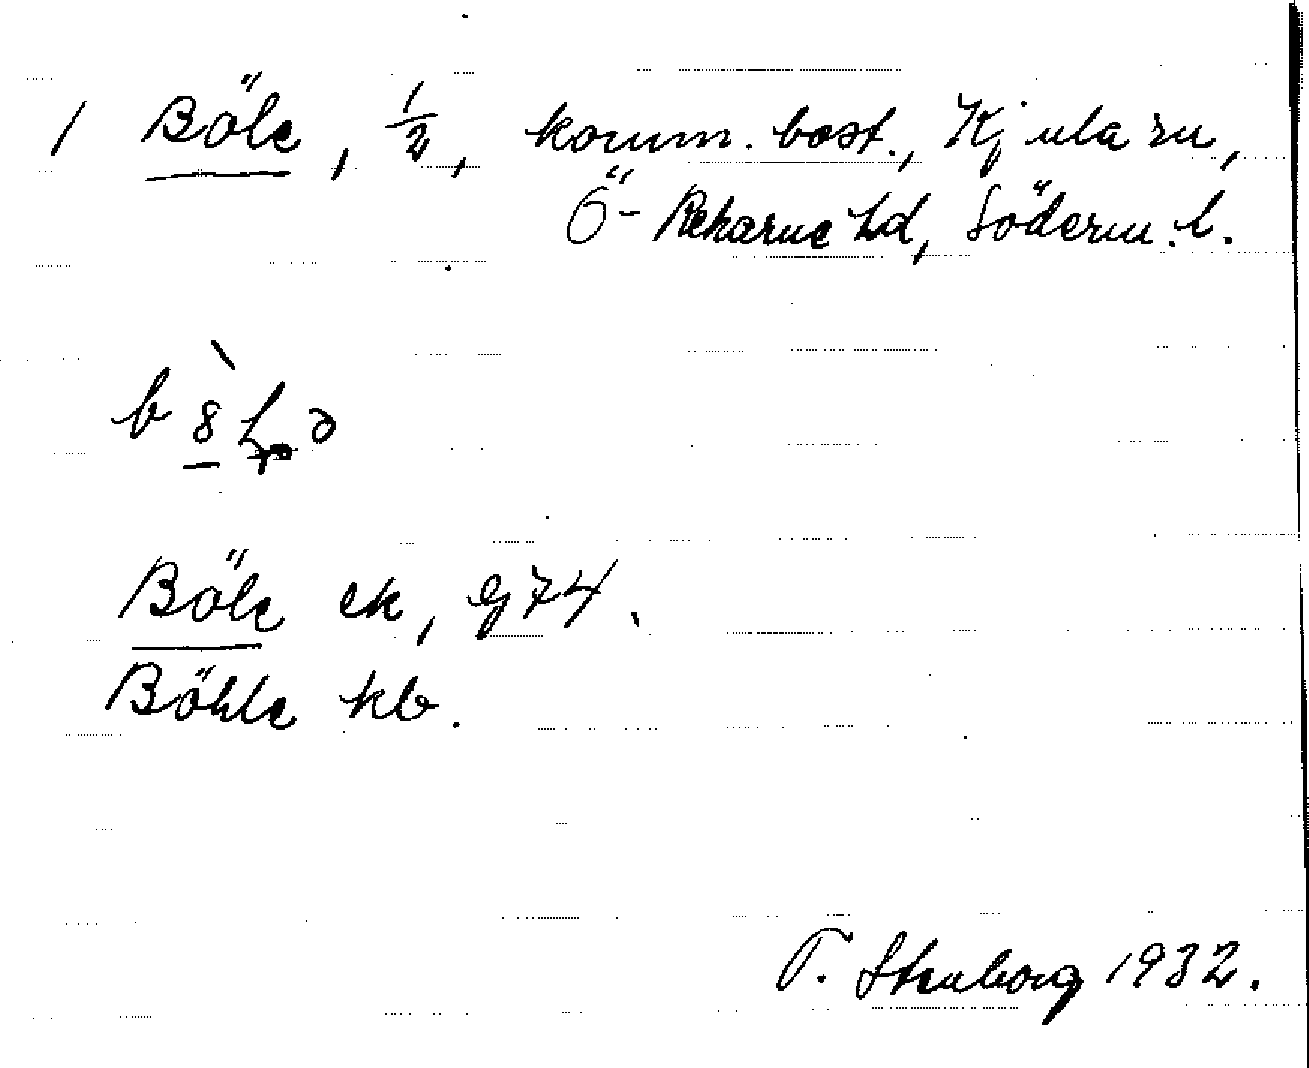 1 Böle, 1/2, komm. bost., Kjula sn,
Ö- Rekarne hd, Söderm. l.
Böle ek, gj 74.
Böhle kb.
T. Stenborg 1932.